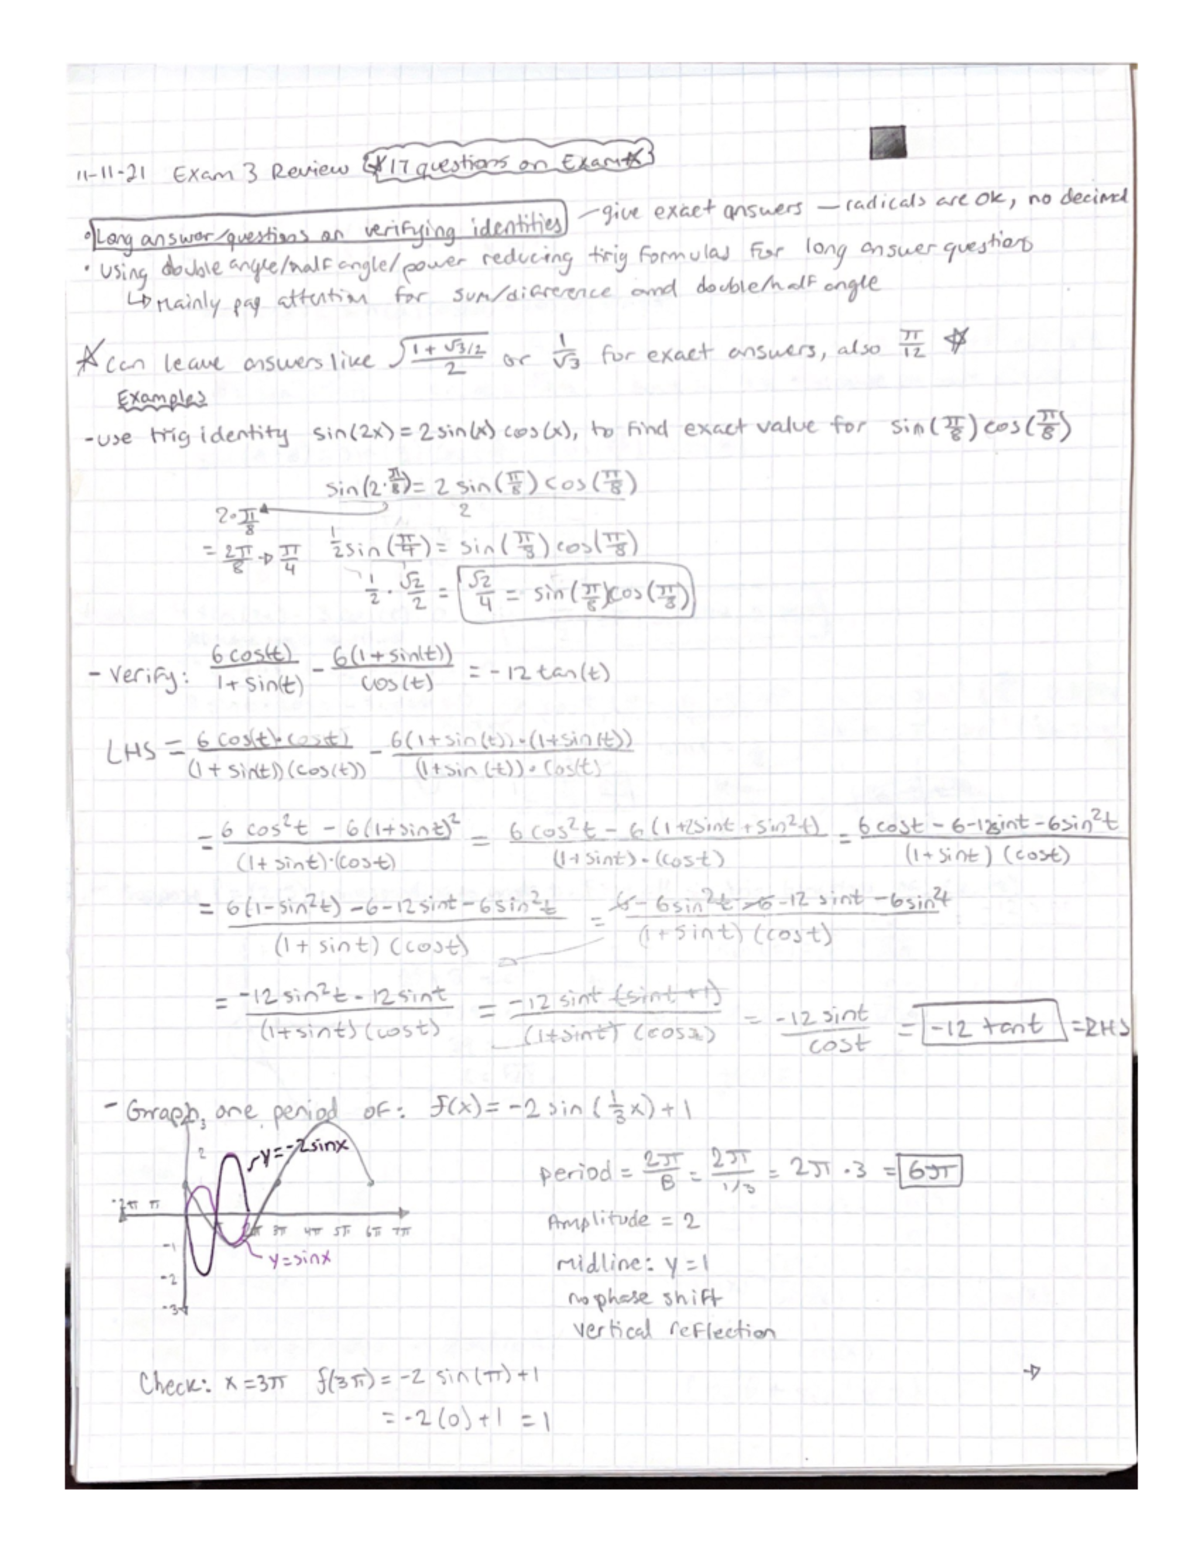 11-11-21 Exam 3 Review *17 questions on Exam*
• Long answer/questions on verifying identities – give exact answers – radicals are ok, no decimal
• Using double angle/half angle/power reducing trig formulas for long answer question
↳ Mainly pay attention for sum/difference and double/half angle
☆ can leave answers like √((1+√3/2)/2) or 1/√3 for exact answers, also π/12 ☆
Examples
- use trig identity sin(2x) = 2 sin(x) cos(x), to find exact value for sin(π/8) cos(π/8)
sin(2·π/8) = 2 sin(π/8) cos(π/8)
2
2·π/8
= 2π/8 → π/4 1/2 sin(π/4) = sin(π/8) cos(π/8)
1/2 · √2/2 = √2/4 = sin(π/8) cos(π/8)
- Verify: 6 cos(t)/(1+sin(t)) - 6(1+sin(t))/cos(t) = -12 tan(t)
LHS = 6 cos(t)·cos(t)/((1+sin(t))(cos(t))) - 6(1+sin(t))·(1+sin(t))/((1+sin(t))·cos(t))
= (6 cos²t - 6(1+sint)²)/((1+sint)·(cost)) = (6 cos²t - 6(1+2sint+sin²t))/((1+sint)·(cost)) = (6 cost - 6 - 12sint - 6sin²t)/((1+sint)(cost))
= (6(1-sin²t) - 6 - 12 sint - 6 sin²t)/((1+sint)(cost)) = (6 - 6sin²t - 6 - 12 sint - 6sin²t)/((1+sint)(cost))
= (-12 sin²t - 12 sint)/((1+sint)(cost)) = -12 sint (sint+1)/((1+sint)(cost)) = -12 sint/cost = -12 tant = RHS
- Graph one period of: f(x) = -2 sin(1/3 x) + 1
2
y=-2sinx
-2π π 2π 3π 4π 5π 6π 7π
-1
y=sinx
-2
-3
period = 2π/B = 2π/1/3 = 2π·3 = 6π
Amplitude = 2
midline: y = 1
no phase shift
vertical reflection
Check: x = 3π f(3π) = -2 sin(π) + 1
= -2(0) + 1 = 1